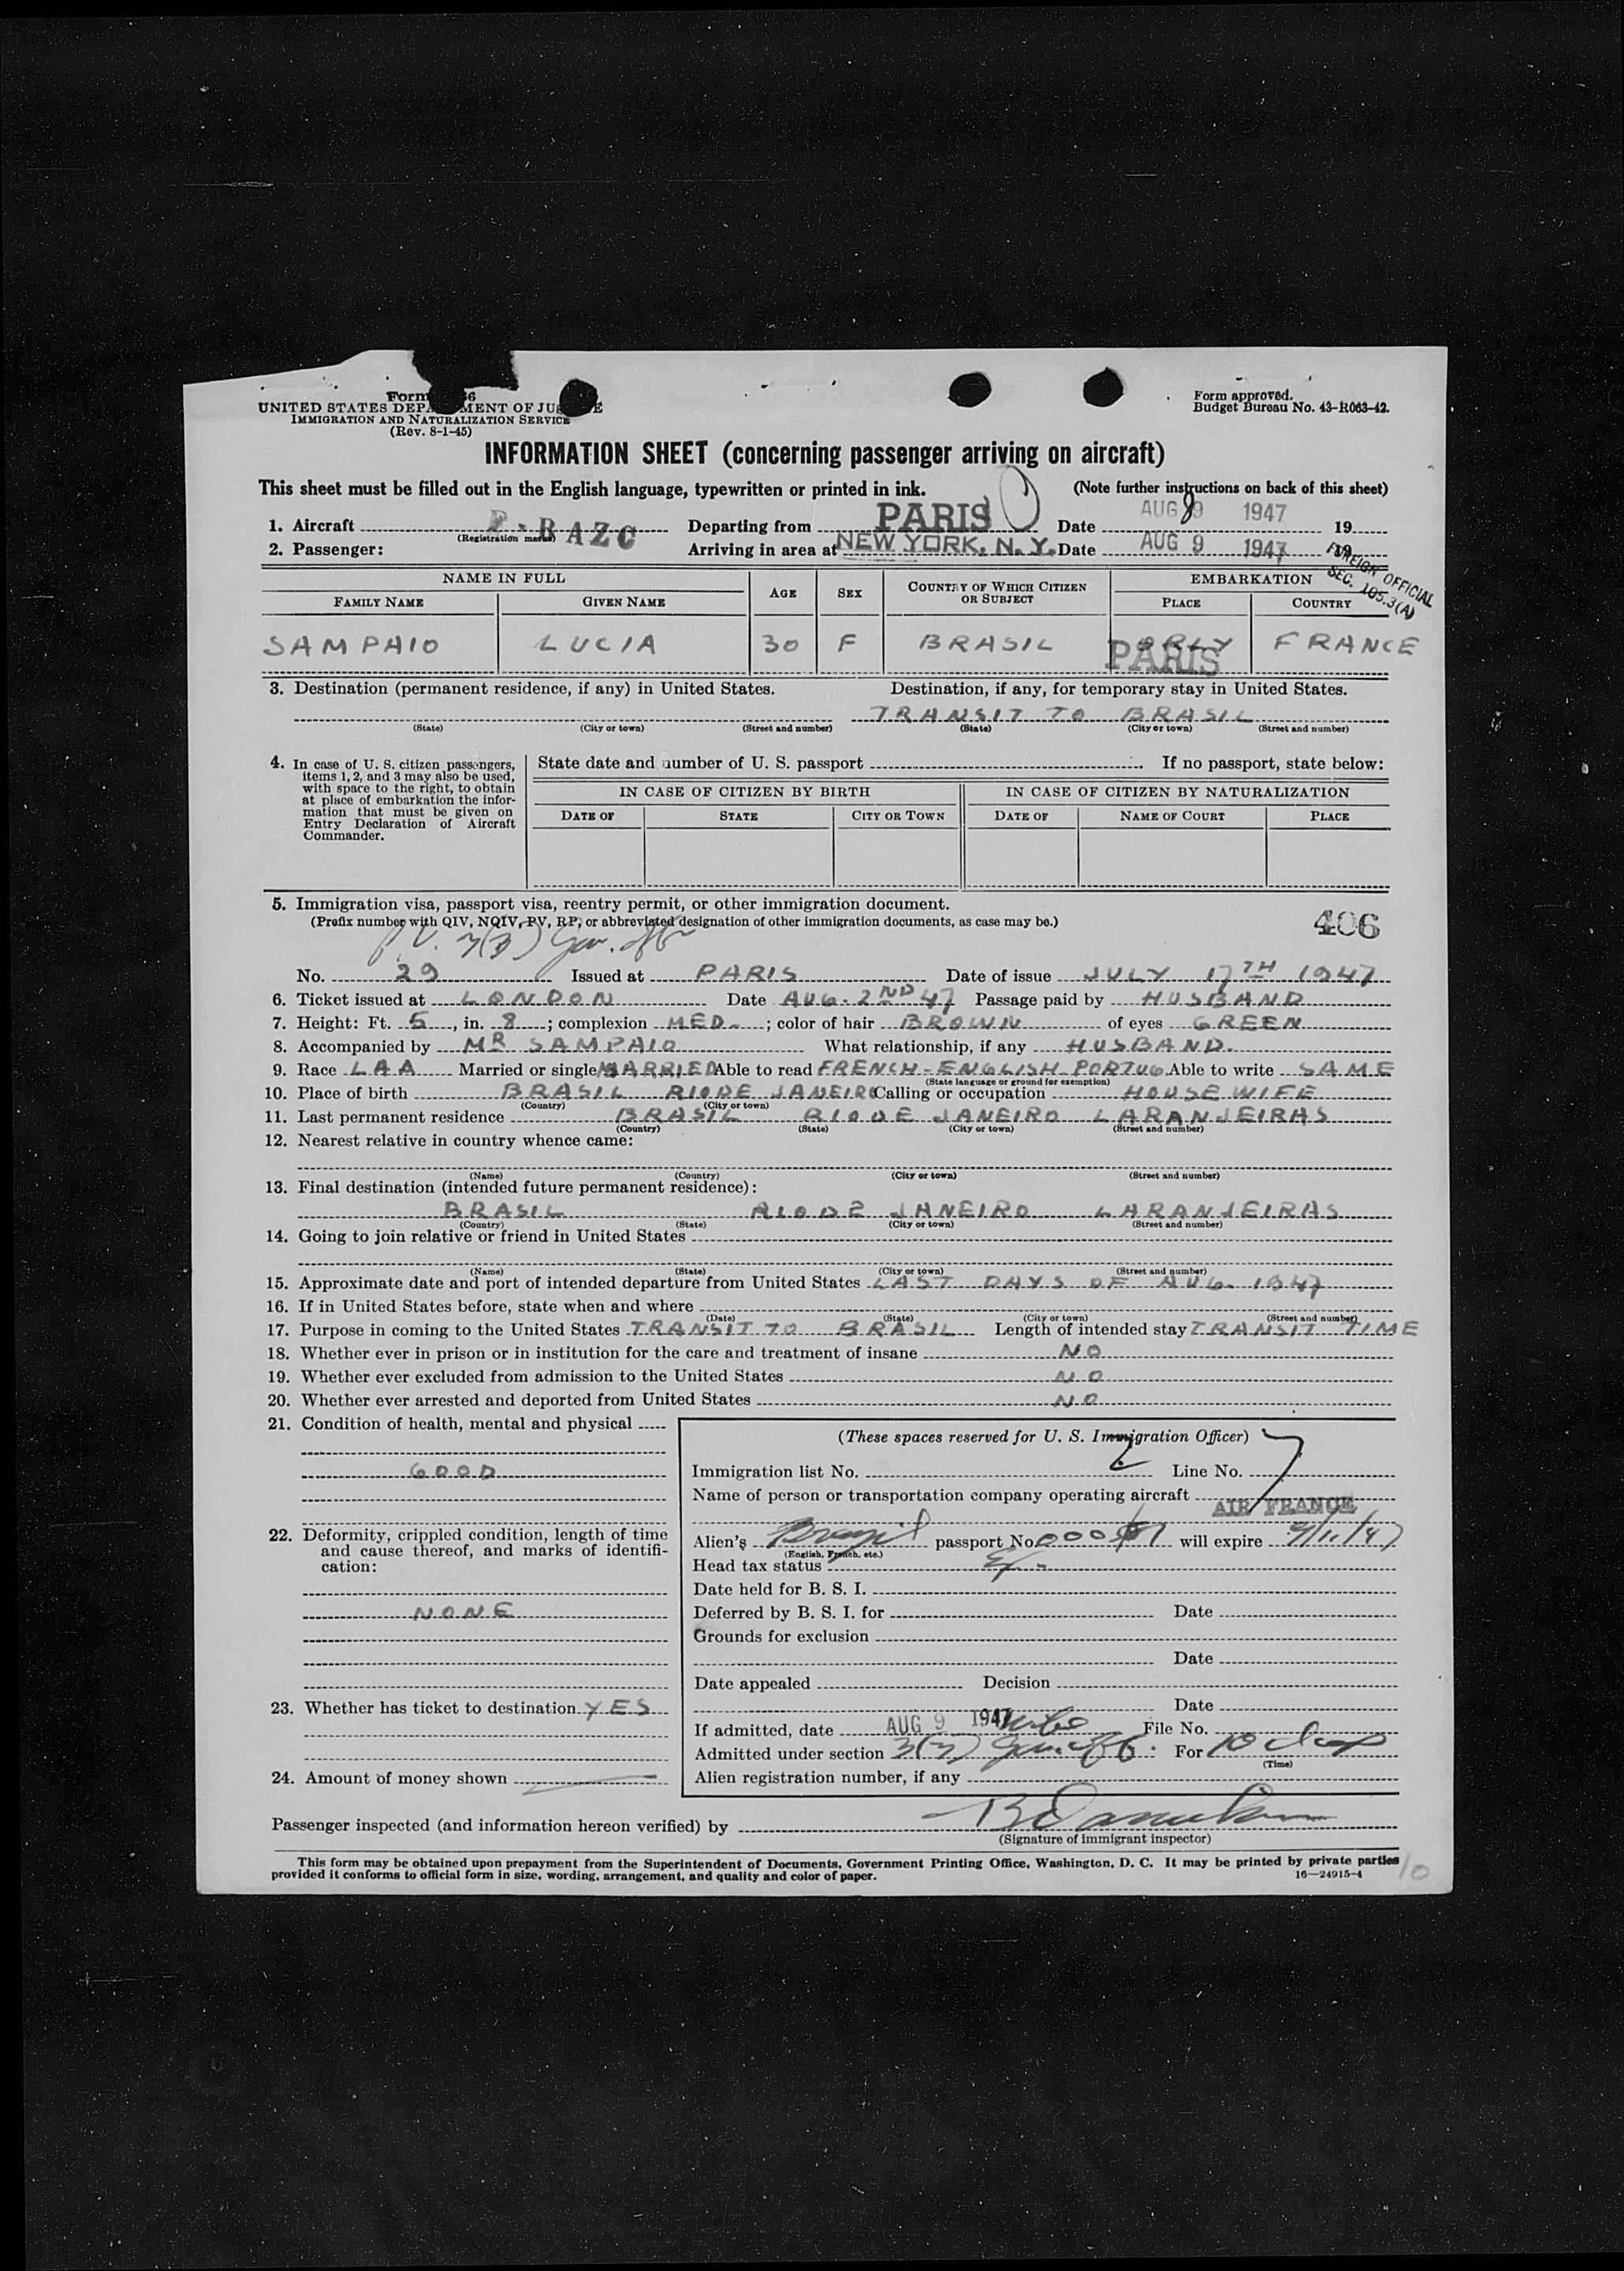 Form 36
UNITED STATES DEPARTMENT OF JUSTICE
IMMIGRATION AND NATURALIZATION SERVICE
(Rev. 8-1-45)
Form approved.
Budget Bureau No. 43-R063-42.
INFORMATION SHEET (concerning passenger arriving on aircraft)
This sheet must be filled out in the English language, typewritten or printed in ink. (Note further instructions on back of this sheet)
1. Aircraft F-BAZC Departing from PARIS Date AUG 8 1947 19
(Registration marks)
2. Passenger: Arriving in area at NEW YORK, N. Y. Date AUG 9 1947 19
FOREIGN OFFICIAL
SEC. 105.3(A)
NAME IN FULL AGE SEX COUNTRY OF WHICH CITIZEN OR SUBJECT EMBARKATION
FAMILY NAME GIVEN NAME PLACE COUNTRY
SAMPAIO LUCIA 30 F BRASIL ORLY FRANCE
PARIS
3. Destination (permanent residence, if any) in United States. Destination, if any, for temporary stay in United States.
TRANSIT TO BRASIL
(State) (City or town) (Street and number) (State) (City or town) (Street and number)
4. In case of U. S. citizen passengers, items 1, 2, and 3 may also be used, with space to the right, to obtain at place of embarkation the information that must be given on Entry Declaration of Aircraft Commander.
State date and number of U. S. passport If no passport, state below:
IN CASE OF CITIZEN BY BIRTH IN CASE OF CITIZEN BY NATURALIZATION
DATE OF STATE CITY OR TOWN DATE OF NAME OF COURT PLACE
5. Immigration visa, passport visa, reentry permit, or other immigration document.
(Prefix number with QIV, NQIV, PV, RP, or abbreviated designation of other immigration documents, as case may be.) 406
P.V. 3(3) Gov. off
No. 29 Issued at PARIS Date of issue JULY 17TH 1947
6. Ticket issued at LONDON Date AUG. 2ND 47 Passage paid by HUSBAND
7. Height: Ft. 5, in. 8; complexion MED.; color of hair BROWN of eyes GREEN
8. Accompanied by MR SAMPAIO What relationship, if any HUSBAND.
9. Race LAA Married or single MARRIED Able to read FRENCH-ENGLISH PORTUG Able to write SAME
(State language or ground for exemption)
10. Place of birth BRASIL RIO DE JANEIRO Calling or occupation HOUSE WIFE
(Country) (City or town)
11. Last permanent residence BRASIL RIO DE JANEIRO LARANJEIRAS
(Country) (State) (City or town) (Street and number)
12. Nearest relative in country whence came:
(Name) (Country) (City or town) (Street and number)
13. Final destination (intended future permanent residence):
BRASIL RIO DE JANEIRO LARANJEIRAS
(Country) (State) (City or town) (Street and number)
14. Going to join relative or friend in United States
(Name) (State) (City or town) (Street and number)
15. Approximate date and port of intended departure from United States LAST DAYS OF AUG. 1947
16. If in United States before, state when and where
(Date) (State) (City or town) (Street and number)
17. Purpose in coming to the United States TRANSIT TO BRASIL Length of intended stay TRANSIT TIME
18. Whether ever in prison or in institution for the care and treatment of insane NO
19. Whether ever excluded from admission to the United States NO
20. Whether ever arrested and deported from United States NO
21. Condition of health, mental and physical
GOOD
22. Deformity, crippled condition, length of time and cause thereof, and marks of identification:
NONE
23. Whether has ticket to destination YES
24. Amount of money shown
(These spaces reserved for U. S. Immigration Officer)
Immigration list No. 2 Line No. 7
Name of person or transportation company operating aircraft
AIR FRANCE
Alien's Brazil passport No. will expire
(English, French, etc.)
Head tax status
Date held for B. S. I.
Deferred by B. S. I. for Date
Grounds for exclusion
Date
Date appealed Decision
Date
If admitted, date AUG 9 1947 File No.
Admitted under section 3(3) Gov. off. For 10 days
(Time)
Alien registration number, if any
Passenger inspected (and information hereon verified) by
(Signature of immigrant inspector)
This form may be obtained upon prepayment from the Superintendent of Documents, Government Printing Office, Washington, D. C. It may be printed by private parties
provided it conforms to official form in size, wording, arrangement, and quality and color of paper. 16—24915-4
10